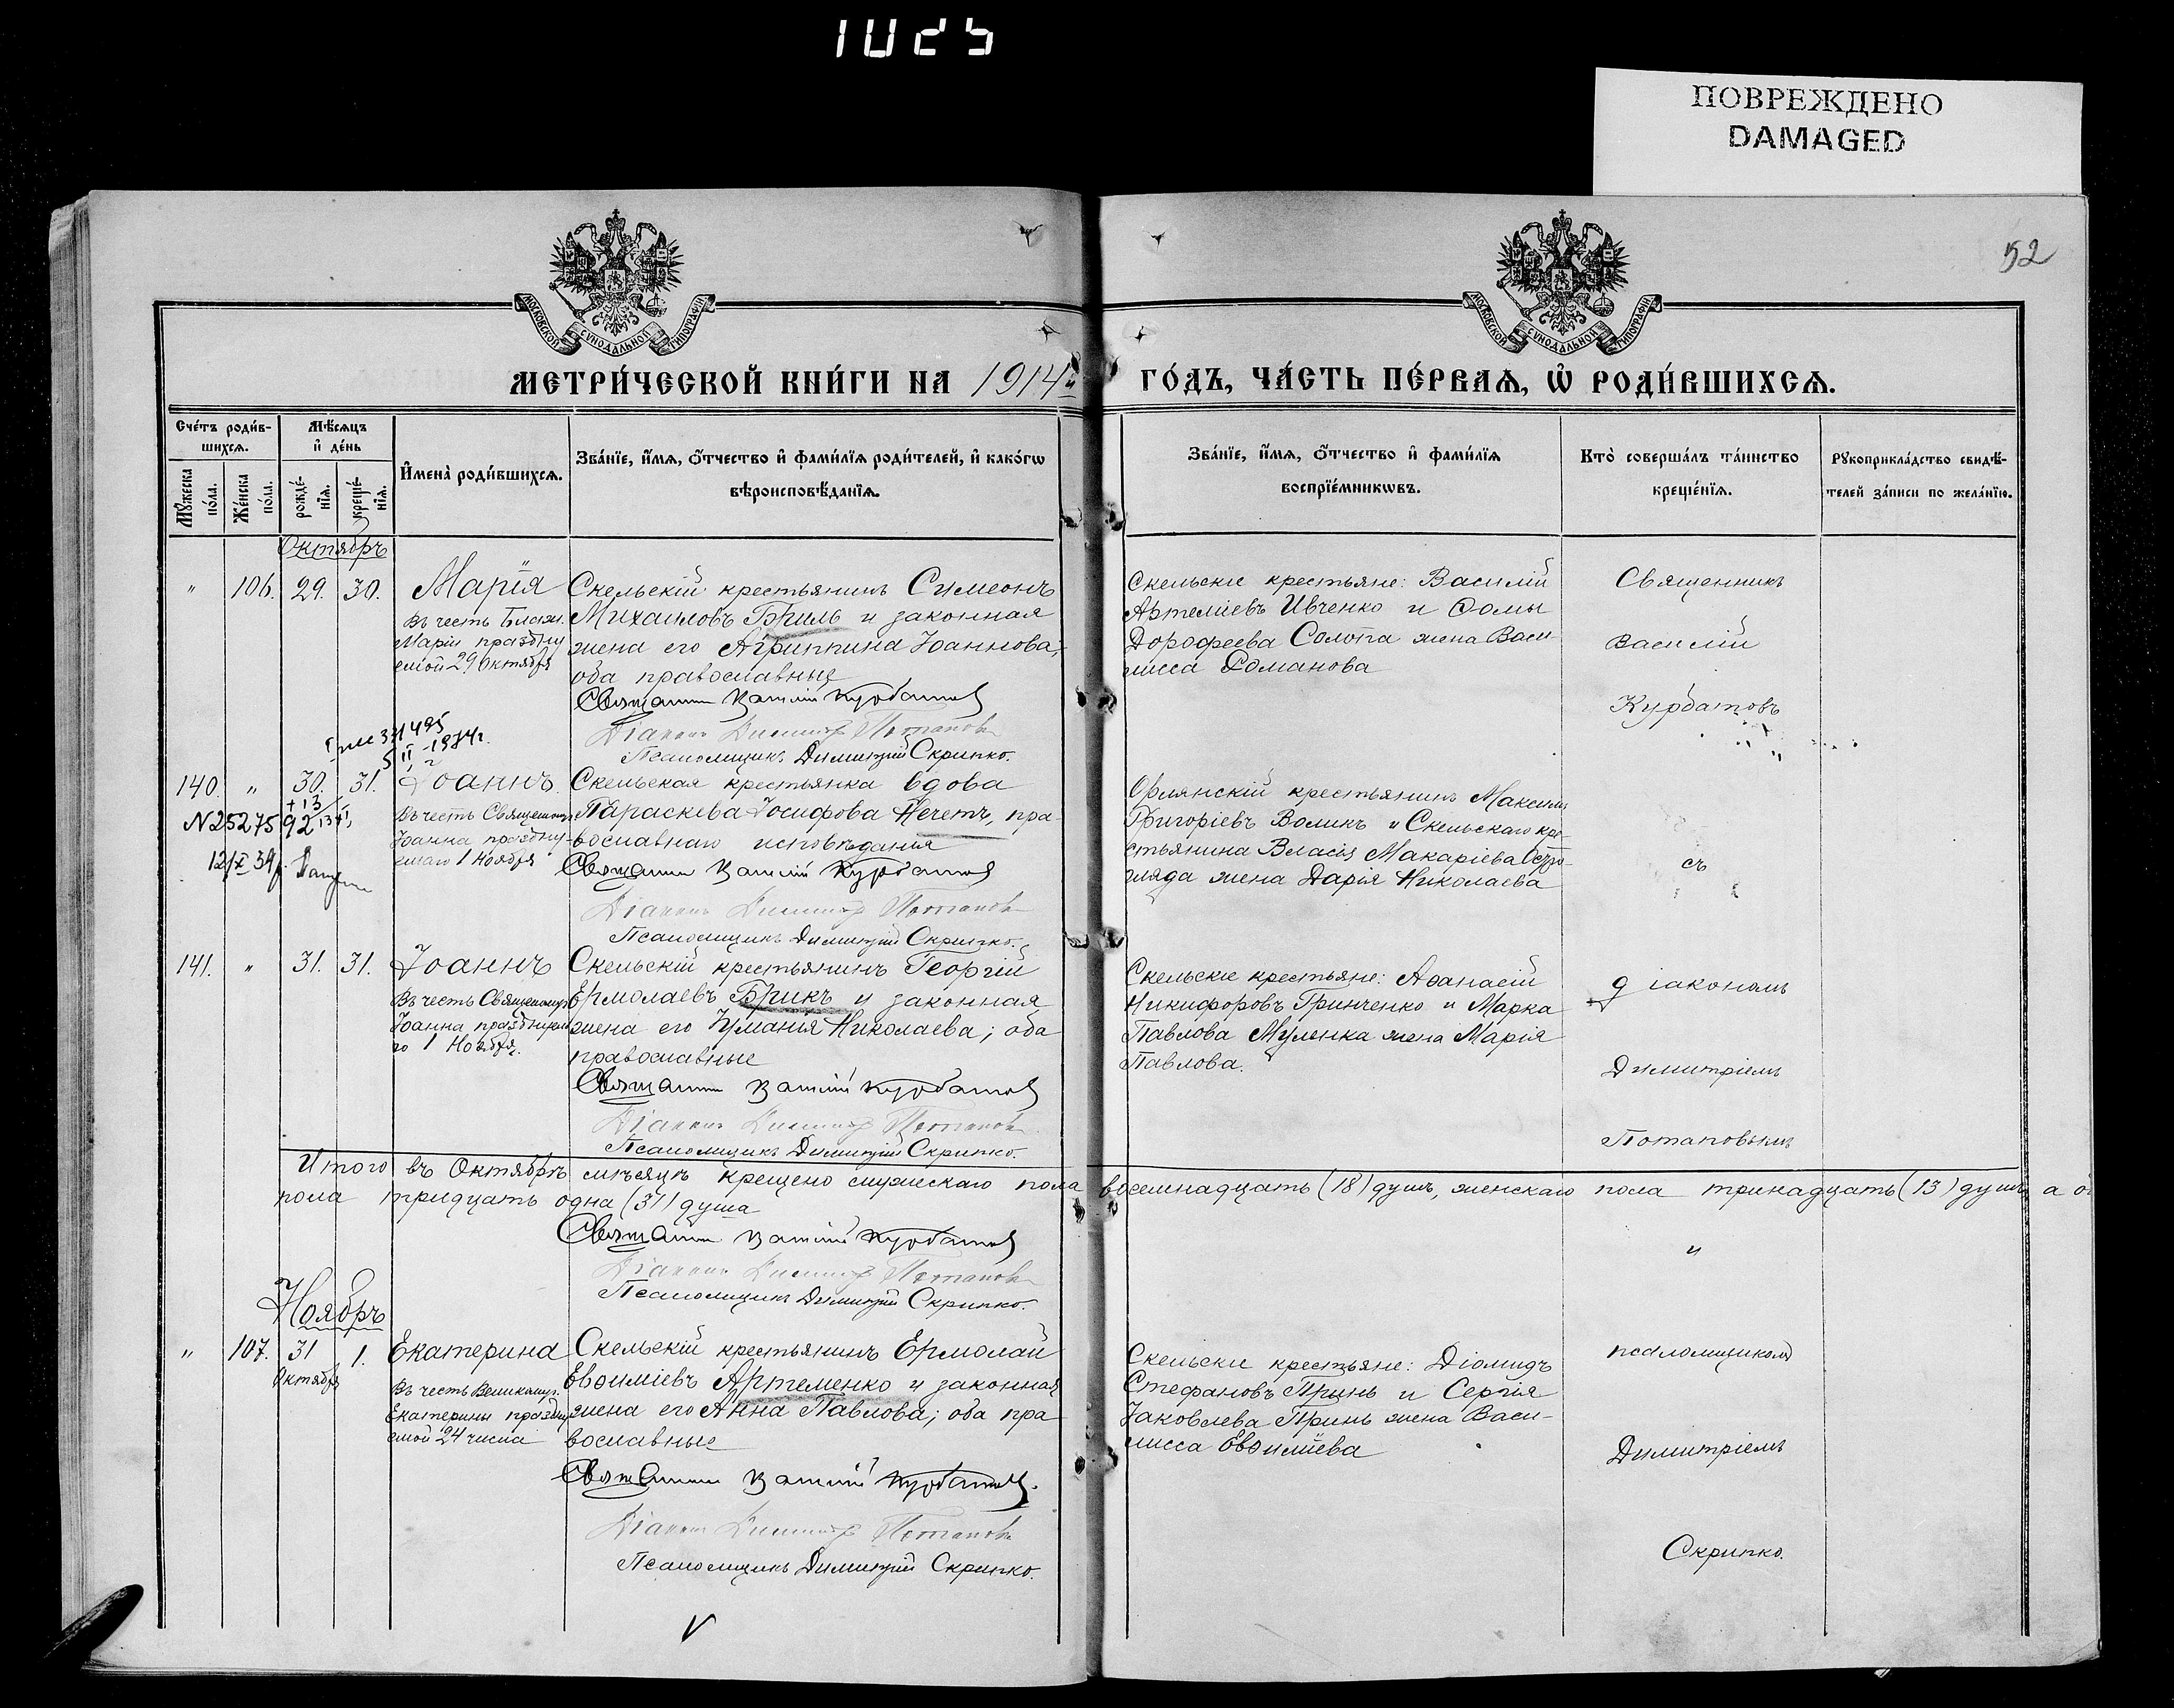 1025
ПОВРЕЖДЕНО
DAMAGED
52
МОСКОВСКОЙ СѴНОДАЛЬНОЙ ТИПОГРАФІИ
МОСКОВСКОЙ СѴНОДАЛЬНОЙ ТИПОГРАФІИ
МЕТРИ́ЧЕСКОЙ КНИ́ГИ НА 1914й
ГО́ДЪ, ЧА́СТЬ ПЕ́РВАѦ, Ѡ҆ РОДИ́ВШИХСѦ.
Сче́тъ роди́в-
шихсѧ.
Мꙋ́жеска
по́ла.
Же́нска
по́ла.
Мѣ́сѧцъ
и҆ де́нь
рожде́-
нїѧ.
креще́-
нїѧ.
И҆мена̀ роди́вшихсѧ.
Зва́нїе, и҆́мѧ, ѻ҆́тчество и҆ фами́лїѧ роди́телей, и҆ како́гѡ
вѣроисповѣ́данїѧ.
Зва́нїе, и҆́мѧ, ѻ҆́тчество и҆ фами́лїѧ
воспрїе́мникѡвъ.
Кто̀ соверша́лъ та́инство
креще́нїѧ.
Рꙋкоприкла́дство свидѣ́-
телей за́писи по жела́нїю.
Октябрь
" 106. 29. 30. Марія
Въ честь Блаж.
Маріи праздну
емой 29 Октября
Скельскій крестьянинъ Симеонъ
Михаиловъ Бриль и законная
жена его Агриппина Іоаннова;
оба православные
Священник Василій Курбатов
Діаконъ Димитр Потапов
Псаломщикъ Димитрій Скрипко.
Скельскіе крестьяне: Василій
Артеміевъ Ивченко и Ѳомы
Дорофеева Солопа жена Васи-
лисса Романова
Священникъ
Василій
Курбатовъ
140. " 30. 31. Іоаннъ
Въ честь Священному.
Іоанна праздну-
емаго 1 Ноября
N25275
Скельская крестьянка вдова
Параскева Іосифова Нечетъ, пра-
вославнаго исповѣданія
Священник Василій Курбатов
Діаконъ Димитр Потапов
Псаломщикъ Димитрій Скрипко.
Орлянскій крестьянинъ Максимъ
Григоріевъ Воликъ и Скельскаго кре-
стьянина Власія Макаріева Остро-
гляда жена Дарія Николаева
съ
141. " 31. 31. Іоаннъ
Въ честь Священному.
Іоанна праздуемa
го 1 Ноября.
Скельскій крестьянинъ Георгій
Ермолаевъ Брикъ и законная
жена его Іуліанія Николаева; оба
православные
Священник Василій Курбатов
Діаконъ Димитр Потапов
Псаломщикъ Димитрій Скрипко.
Скельскіе крестьяне: Аѳанасій
Никифоровъ Гринченко и Марка
Павлова Муленка жена Марія
Павлова.
діакономъ
Димитріемъ
Потаповымъ
Итого въ Октябрѣ мѣсяцѣ крещено мужескаго пола восемнадцать (18) душъ, женскаго пола тринадцать (13) душъ, а об
пола тридцать одна (31) душа
Священник Василій Курбатов
Діаконъ Димитр Потапов
Псаломщикъ Димитрій Скрипко.
и
Ноябрь
" 107. 31 1. Екатерина
Октября
Въ честь Великому.
Екатерины праздну
емой 24 числа
Скельскій крестьянинъ Ермолай
Евѳиміевъ Артеменко и законная
жена его Анна Павлова; оба пра
вославные
Священник Василій Курбатов.
Діаконъ Димитр Потапов
Псаломщикъ Димитрій Скрипко.
Скельскіе крестьяне: Діомидъ
Стефановъ Принь и Сергія
Іаковлева Принь жена Васи-
лисса Евѳиміева
псаломщикомъ
Димитріемъ
Скрипко.